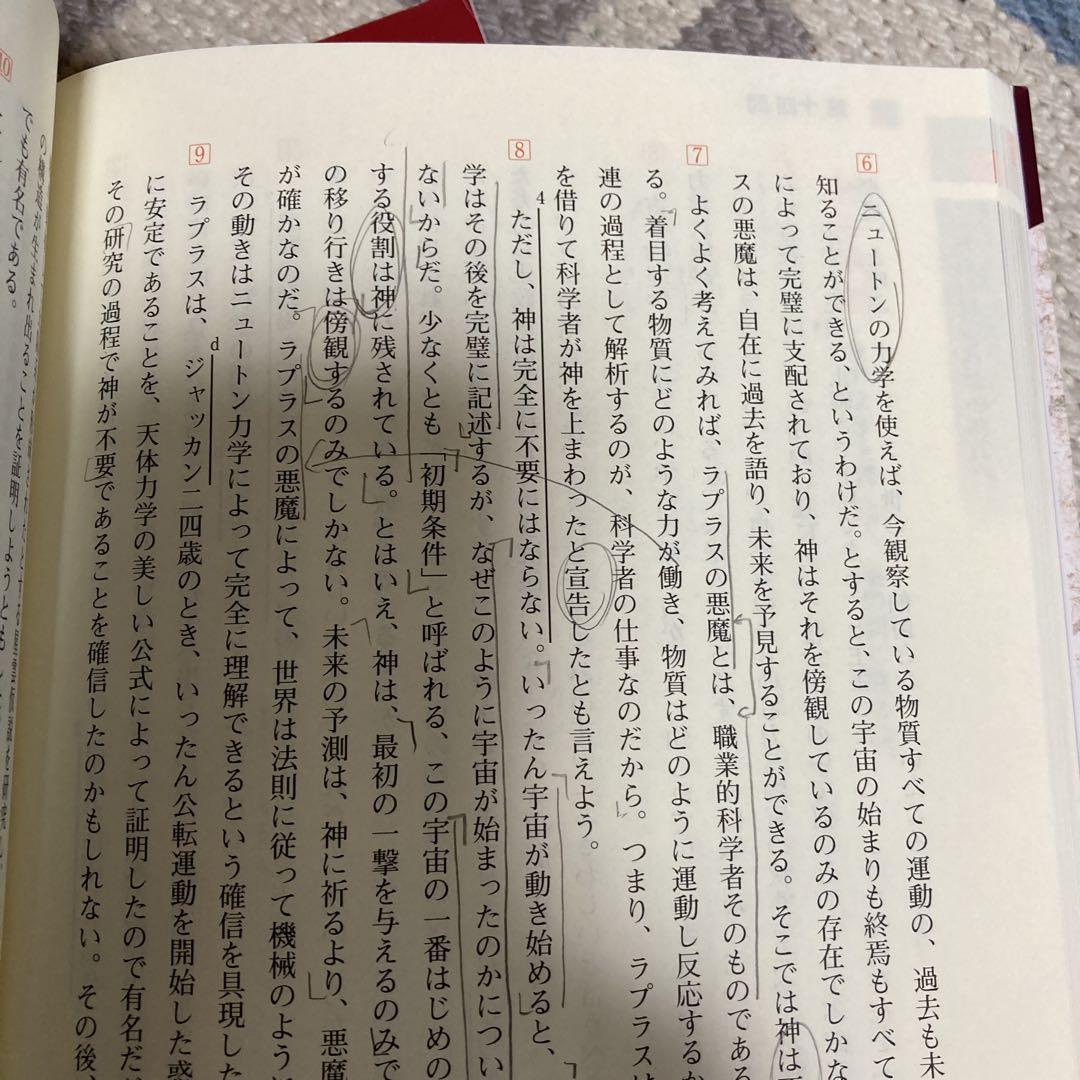 6
ニュートンの力学を使えば、今観察している物質すべての運動の、過去も未
知ることができる、というわけだ。とすると、この宇宙の始まりも終焉もすべて
によって完璧に支配されており、神はそれを傍観しているのみの存在でしかな
スの悪魔は、自在に過去を語り、未来を予見することができる。そこでは神は
7
よくよく考えてみれば、ラプラスの悪魔とは、職業的科学者そのものである
る。着目する物質にどのような力が働き、物質はどのように運動し反応するか
連の過程として解析するのが、科学者の仕事なのだから。つまり、ラプラスは
を借りて科学者が神を上まわったと宣告したとも言えよう。
8
4
ただし、神は完全に不要にはならない。いったん宇宙が動き始めると、
学はその後を完璧に記述するが、なぜこのように宇宙が始まったのかについ
ないからだ。少なくとも「初期条件」と呼ばれる、この宇宙の一番はじめの
する役割は神に残されている。とはいえ、神は、最初の一撃を与えるのみで
の移り行きは傍観するのみでしかない。未来の予測は、神に祈るより、悪魔
が確かなのだ。ラプラスの悪魔によって、世界は法則に従って機械のように
その動きはニュートン力学によって完全に理解できるという確信を具現した
9
d
ラプラスは、ジャッカン二四歳のとき、いったん公転運動を開始した惑
に安定であることを、天体力学の美しい公式によって証明したので有名だ
その研究の過程で神が不要であることを確信したのかもしれない。その後、
の構造が生まれ出ることを証明しようとも
でも有名である。
10